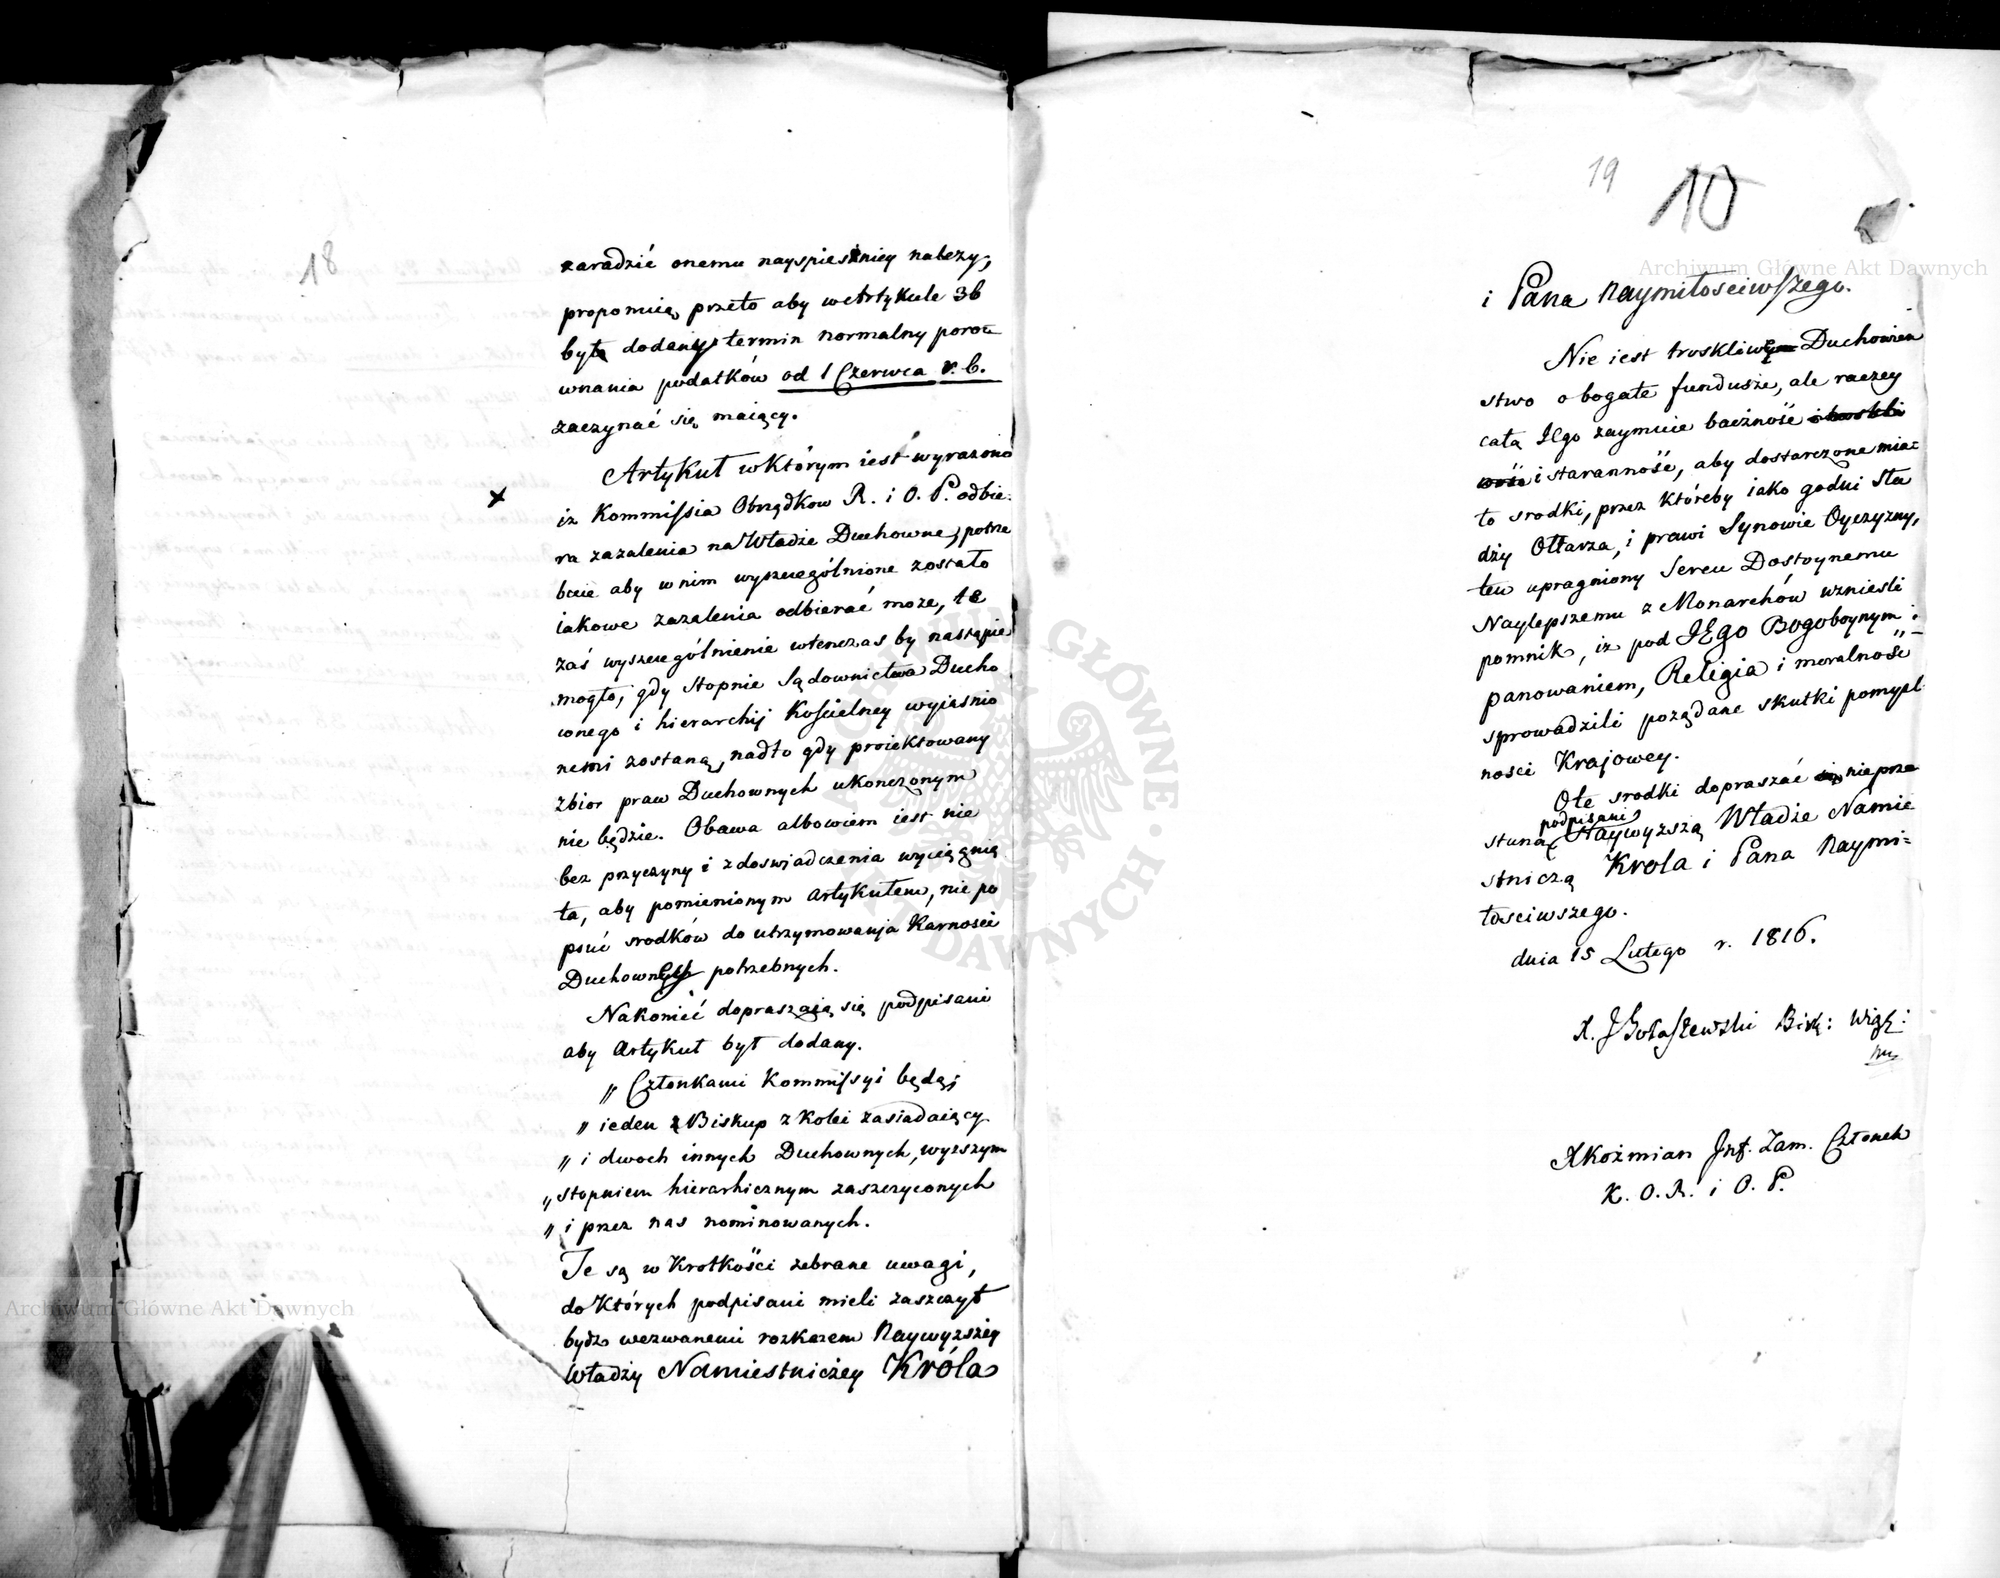 18
zaradzić onemu nayspieszniey należy,
proponuią przeto aby w Artykule 36
było dodany termin normalny porow
wnania podatków od 1 Czerwca r. b.
zaczynać się maiący.
Artykuł w którym iest wyrażono
x
iż Kommissia Obrządkow R. i O. P. odbie-
ra zażalenia na Władze Duchowne, potrze
buie aby w nim wyszczególnione zostało
iakowe zażalenia odbierać może, te
zaś wyszczególnienie wtenczas by nastąpić
mogło, gdy stopnie Sądownictwa Ducho
wnego i hierarchij Kościelney wyiaśnio
nemi zostaną, nadto gdy proiektowany
zbior praw Duchownych ukonczonym
nie będzie. Obawa albowiem iest nie
bez przyczyny i z doswiadczenia wyciągnię
ta, aby pomienionym Artykułem, nie po
psuć srodków do utrzymowania Karnosci
Duchownych potrzebnych.
Nakonieć dopraszaią się podpisani
aby Artykuł był dodany.
„ Członkami Kommissyi będą;
„ ieden Biskup z Kolei zasiadaiący
„ i dwoch innych Duchownych, wyższym
„ stopniem hierarhicznym zaszczyconych
„ i przez nas nominowanych.
Te są w Krotkości zebrane uwagi,
do Których podpisani mieli zaszczyt
bydz wezwanemi rozkazem Naywyższey
Władzy Namiestniczey Króla
19 10
i Pana Naymiłosciwszego.
Nie iest troskliwym Duchowień
stwo o bogate fundusze, ale raczey
całą JEgo zaymuie baczność i troskli
wość i staranność, aby dostarczone mia=
to srodki, przez któreby iako godni Słu
dzy Ołtarza, i prawi Synowie Oyczyzny,
ten upragniony Sercu Dostoynemu
Naylepszemu z Monarchów wznieśli
pomnik, iż pod JEgo Bogoboynym i
panowaniem, Religia i moralność
sprowadzili pożądane skutki pomysl-
ności Krajowey.
Ote srodki dopraszać się nieprze
podpisani
staną Naywyższą Władze Namie
stniczą Krola i Pana Naymi=
łosciwszego.
dnia 15 Lutego r. 1816.
X. J Gołaszewski Bisk: Wigr:
mp
X Koźmian Inf. Zam. Członek
K. O. R. i O. P.
Archiwum Główne Akt Dawnych
Archiwum Główne Akt Dawnych
ARCHIWUM GŁÓWNE AKT DAWNYCH